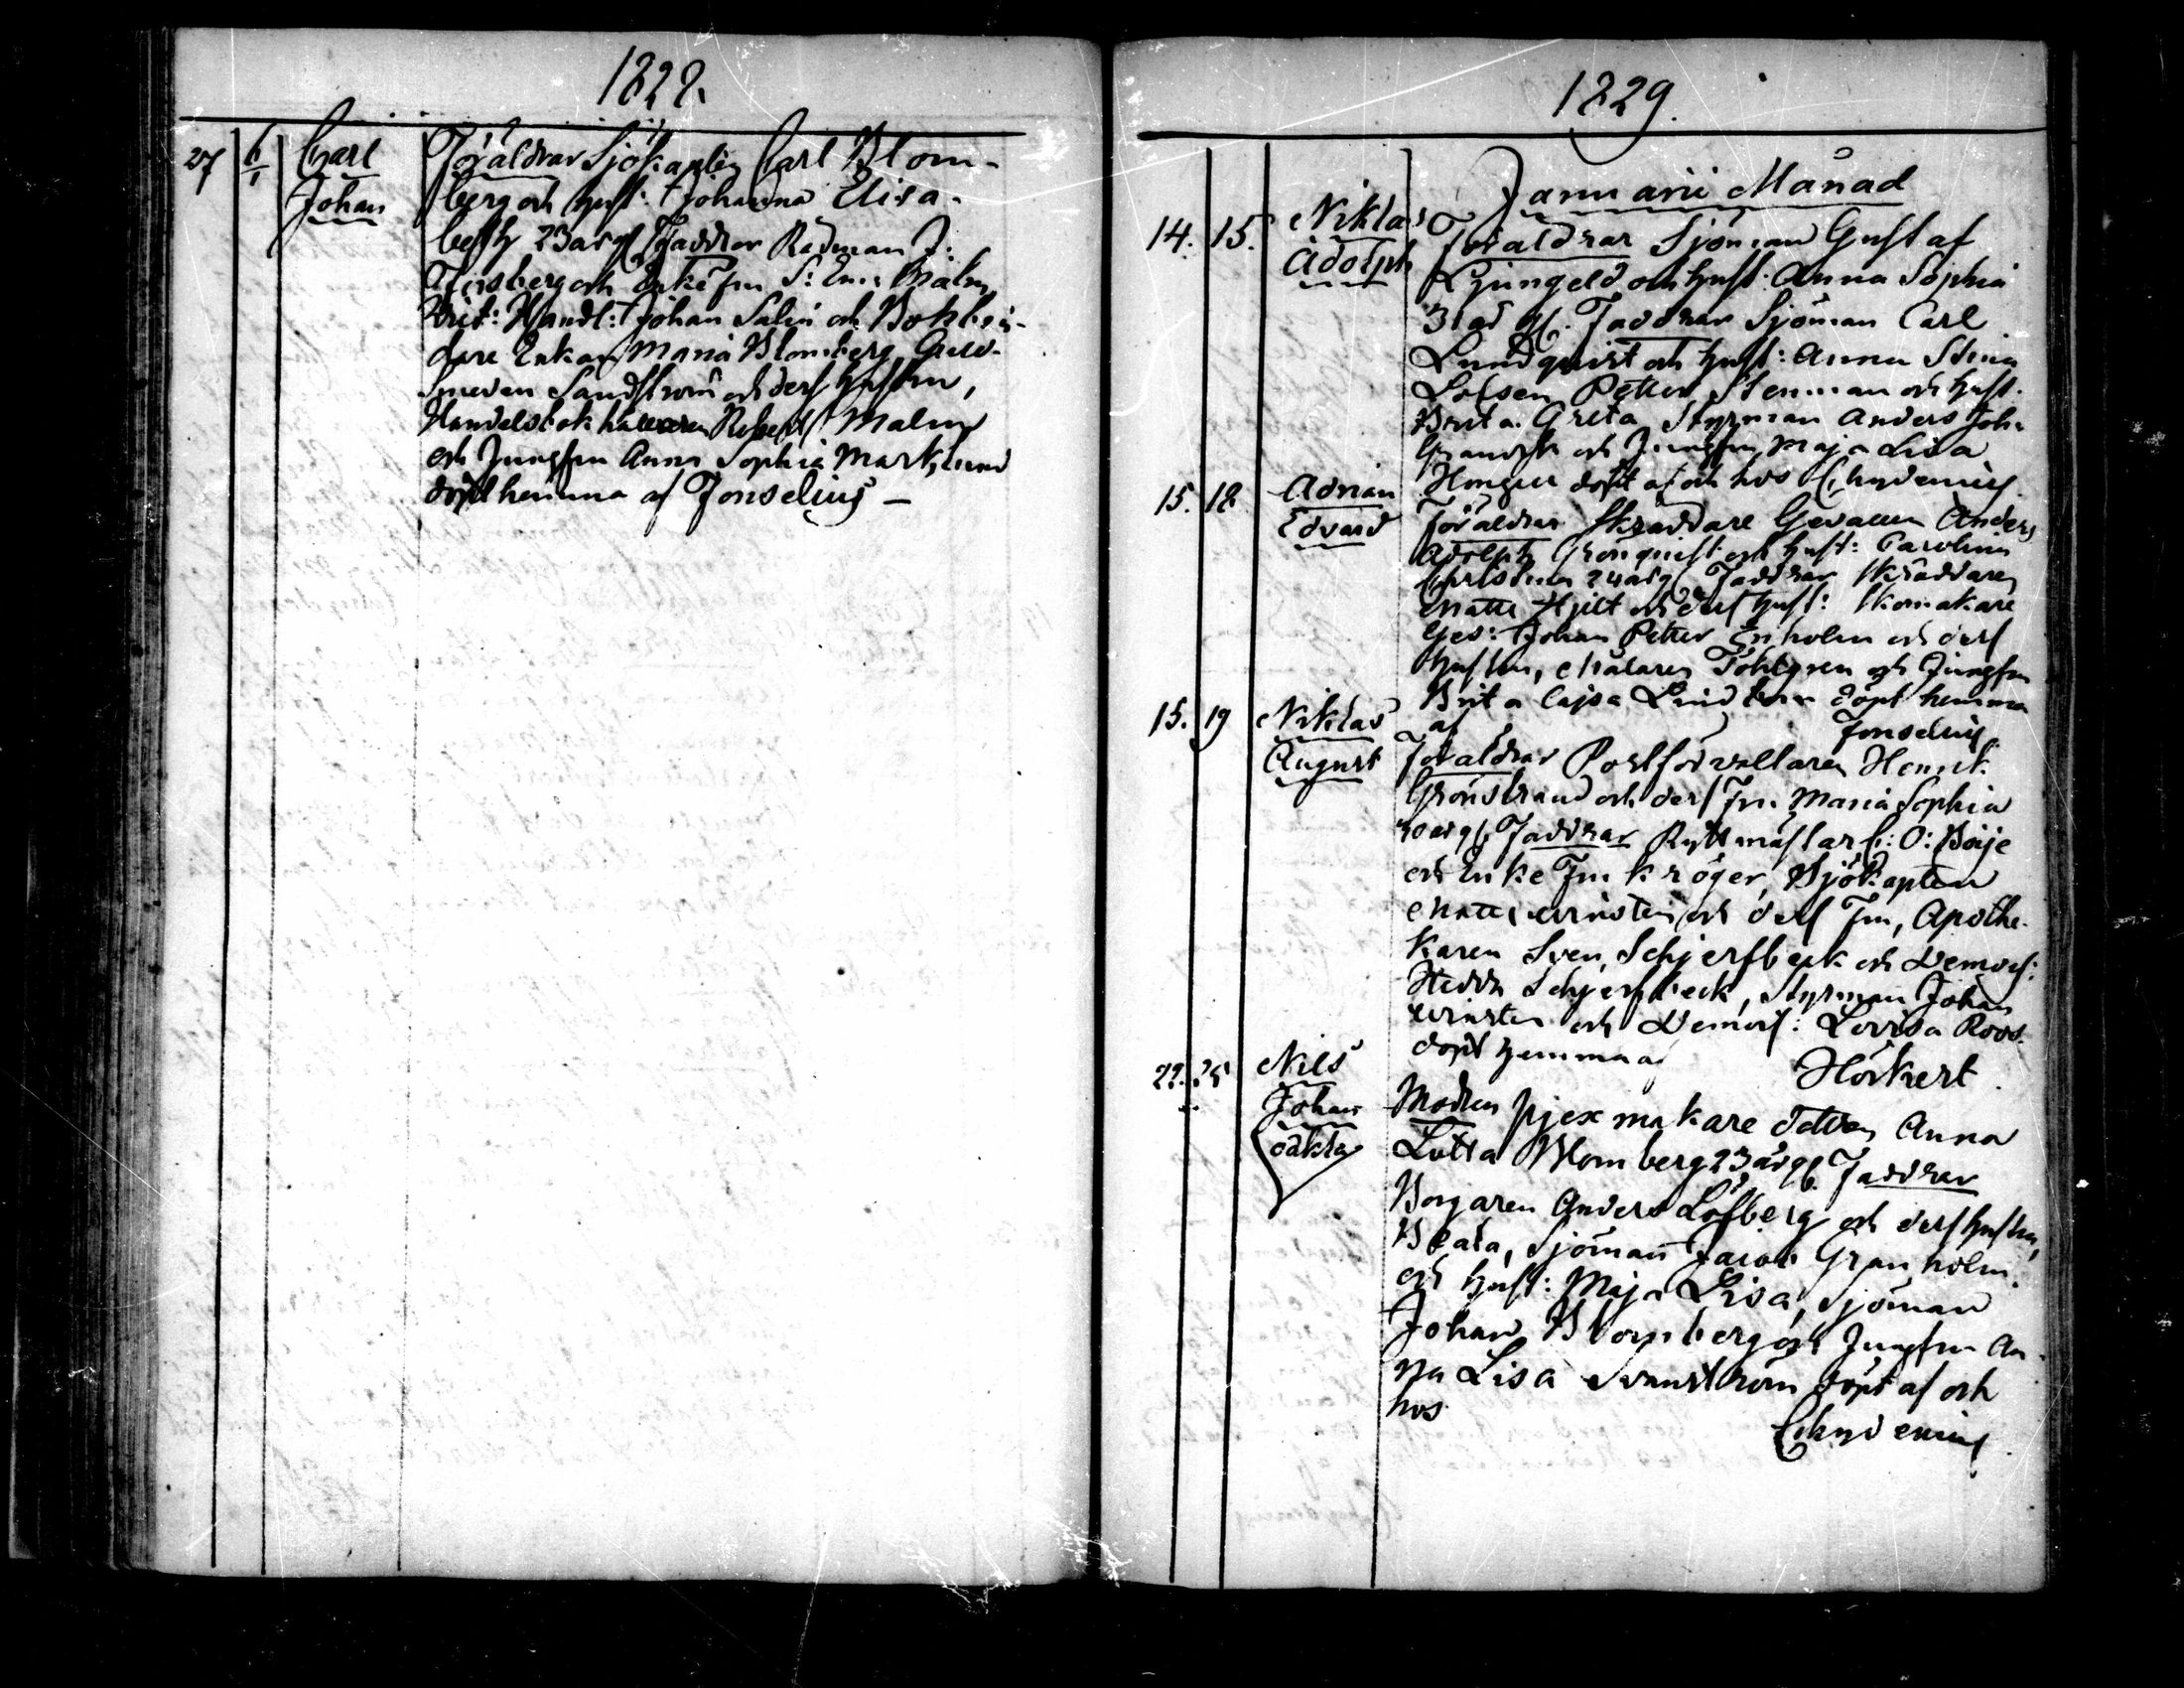 1828.
27 6/1 Carl Föräldrar Sjökapten Carl Blom-
Johan berg och hust: Johanna Elisa-
beth 23 årg Faddrar Rådman J:
och Enkefru
Brit: Handl: Johan Salin och Bokbin-
dare Enkan Maria Blomberg, Guld-
smeden Sandström och dess hustru,
Handelsbokhållaren Robert Malm
och Jungfru Anna Sophia Marklund
döpt hemma af Fonselius —
1829.
Januarii Månad
14. 15. Niklas Föräldrar Sjöman Gustaf
Adolph Ljungeld och hust: Anna Sophia
31 åd gl. Faddrar Sjöman Carl
Lundquist och hust: Anna Stina
Lotsen Petter Stenman och hust.
Brita Greta, Styrman Anders Joh.
Granvik och Jungfru Maja Lisa
döpt af och hos Chydenius.
15. 18 Adrian Föräldrar Skräddare Gesällen Anders
Edvard Adolph Grönquist och hust: Carolina
Christina 24 årg Faddrar Skräddaren
Matts Hjelt och dess hust: Skomakare
Ges: Johan Petter Enholm och dess
hustru, Målaren Fohlgren och Jungfru
Brita Cajsa döpt hemma
af Fonselius.
15. 19 Niklas Föräldrar Postförvaltaren Henrik
August Grönstrand och dess Fru Maria Sophia
30 årg. Faddrar Ryttmästar C: O: Boije
och Enke Fru Kröger, Sjökapten
Matts och dess Fru, Apothe-
karen Sven Schjerfbeck och Demois:
Hedda Schjerfbeck, Styrman Johan
och Demois: Lovisa Roos.
döpt hemma af Hörkert.
22. 25 Nils Modren pjexmakare dottren Anna
Johan Lotta Blomberg 23 årg. Faddrar
oäkta Borgaren Anders Löfberg och dess hustru,
Beata, Sjöman Jacob Granholm
och hust: Maja Lisa, Sjöman
Johan Blomberg och Jungfru An-
na Lisa Svanström döpt af och
hos
Chydenius.